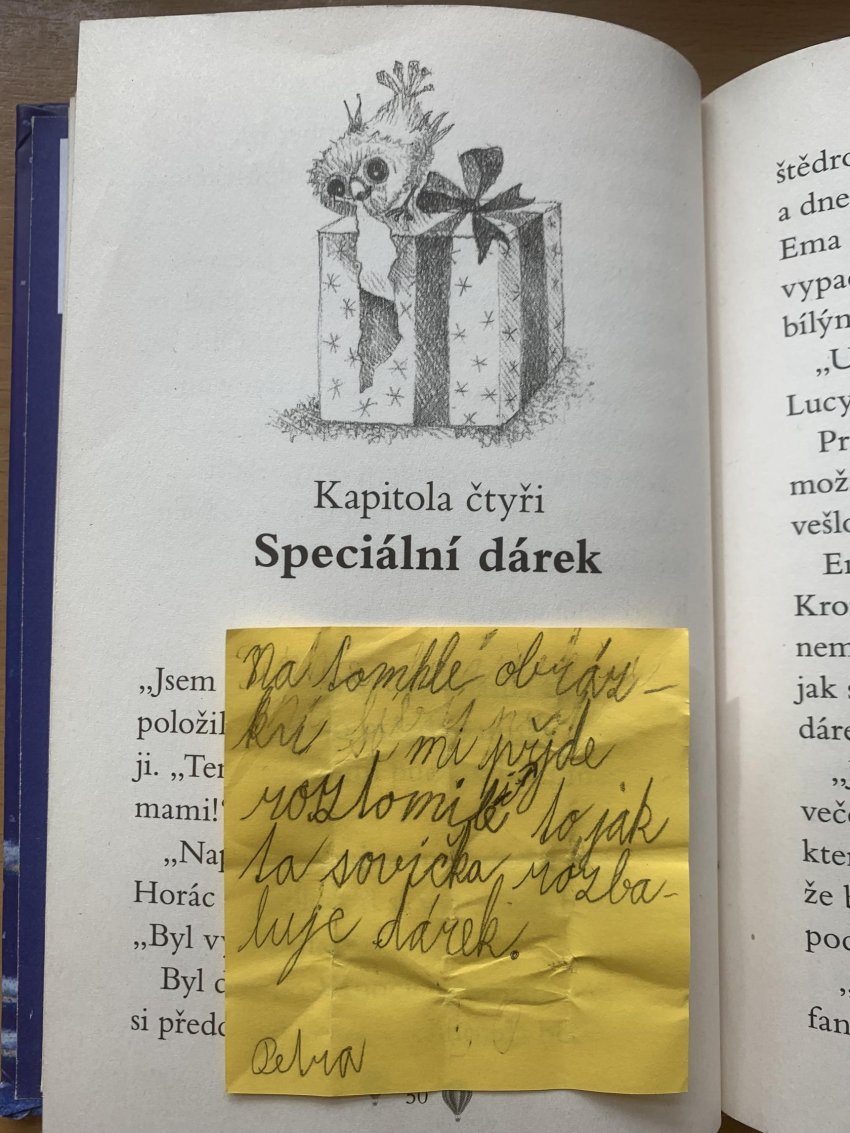 Kapitola čtyři
Speciální dárek
„Jsem
položil
ji. „Ter
mami!“
„Nap
Horác
„Byl vy
Byl d
si předs
Na tomhle obráz-
ku mi příjde
roztomilé to jak
ta sovička rozba-
luje dárek.
Petra
50
štědro
a dne
Ema
vypad
bílým
„U
Lucy
Pr
mož
vešlo
Em
Kro
nem
jak s
dáre
„J
veče
kter
že b
pod
„
fan